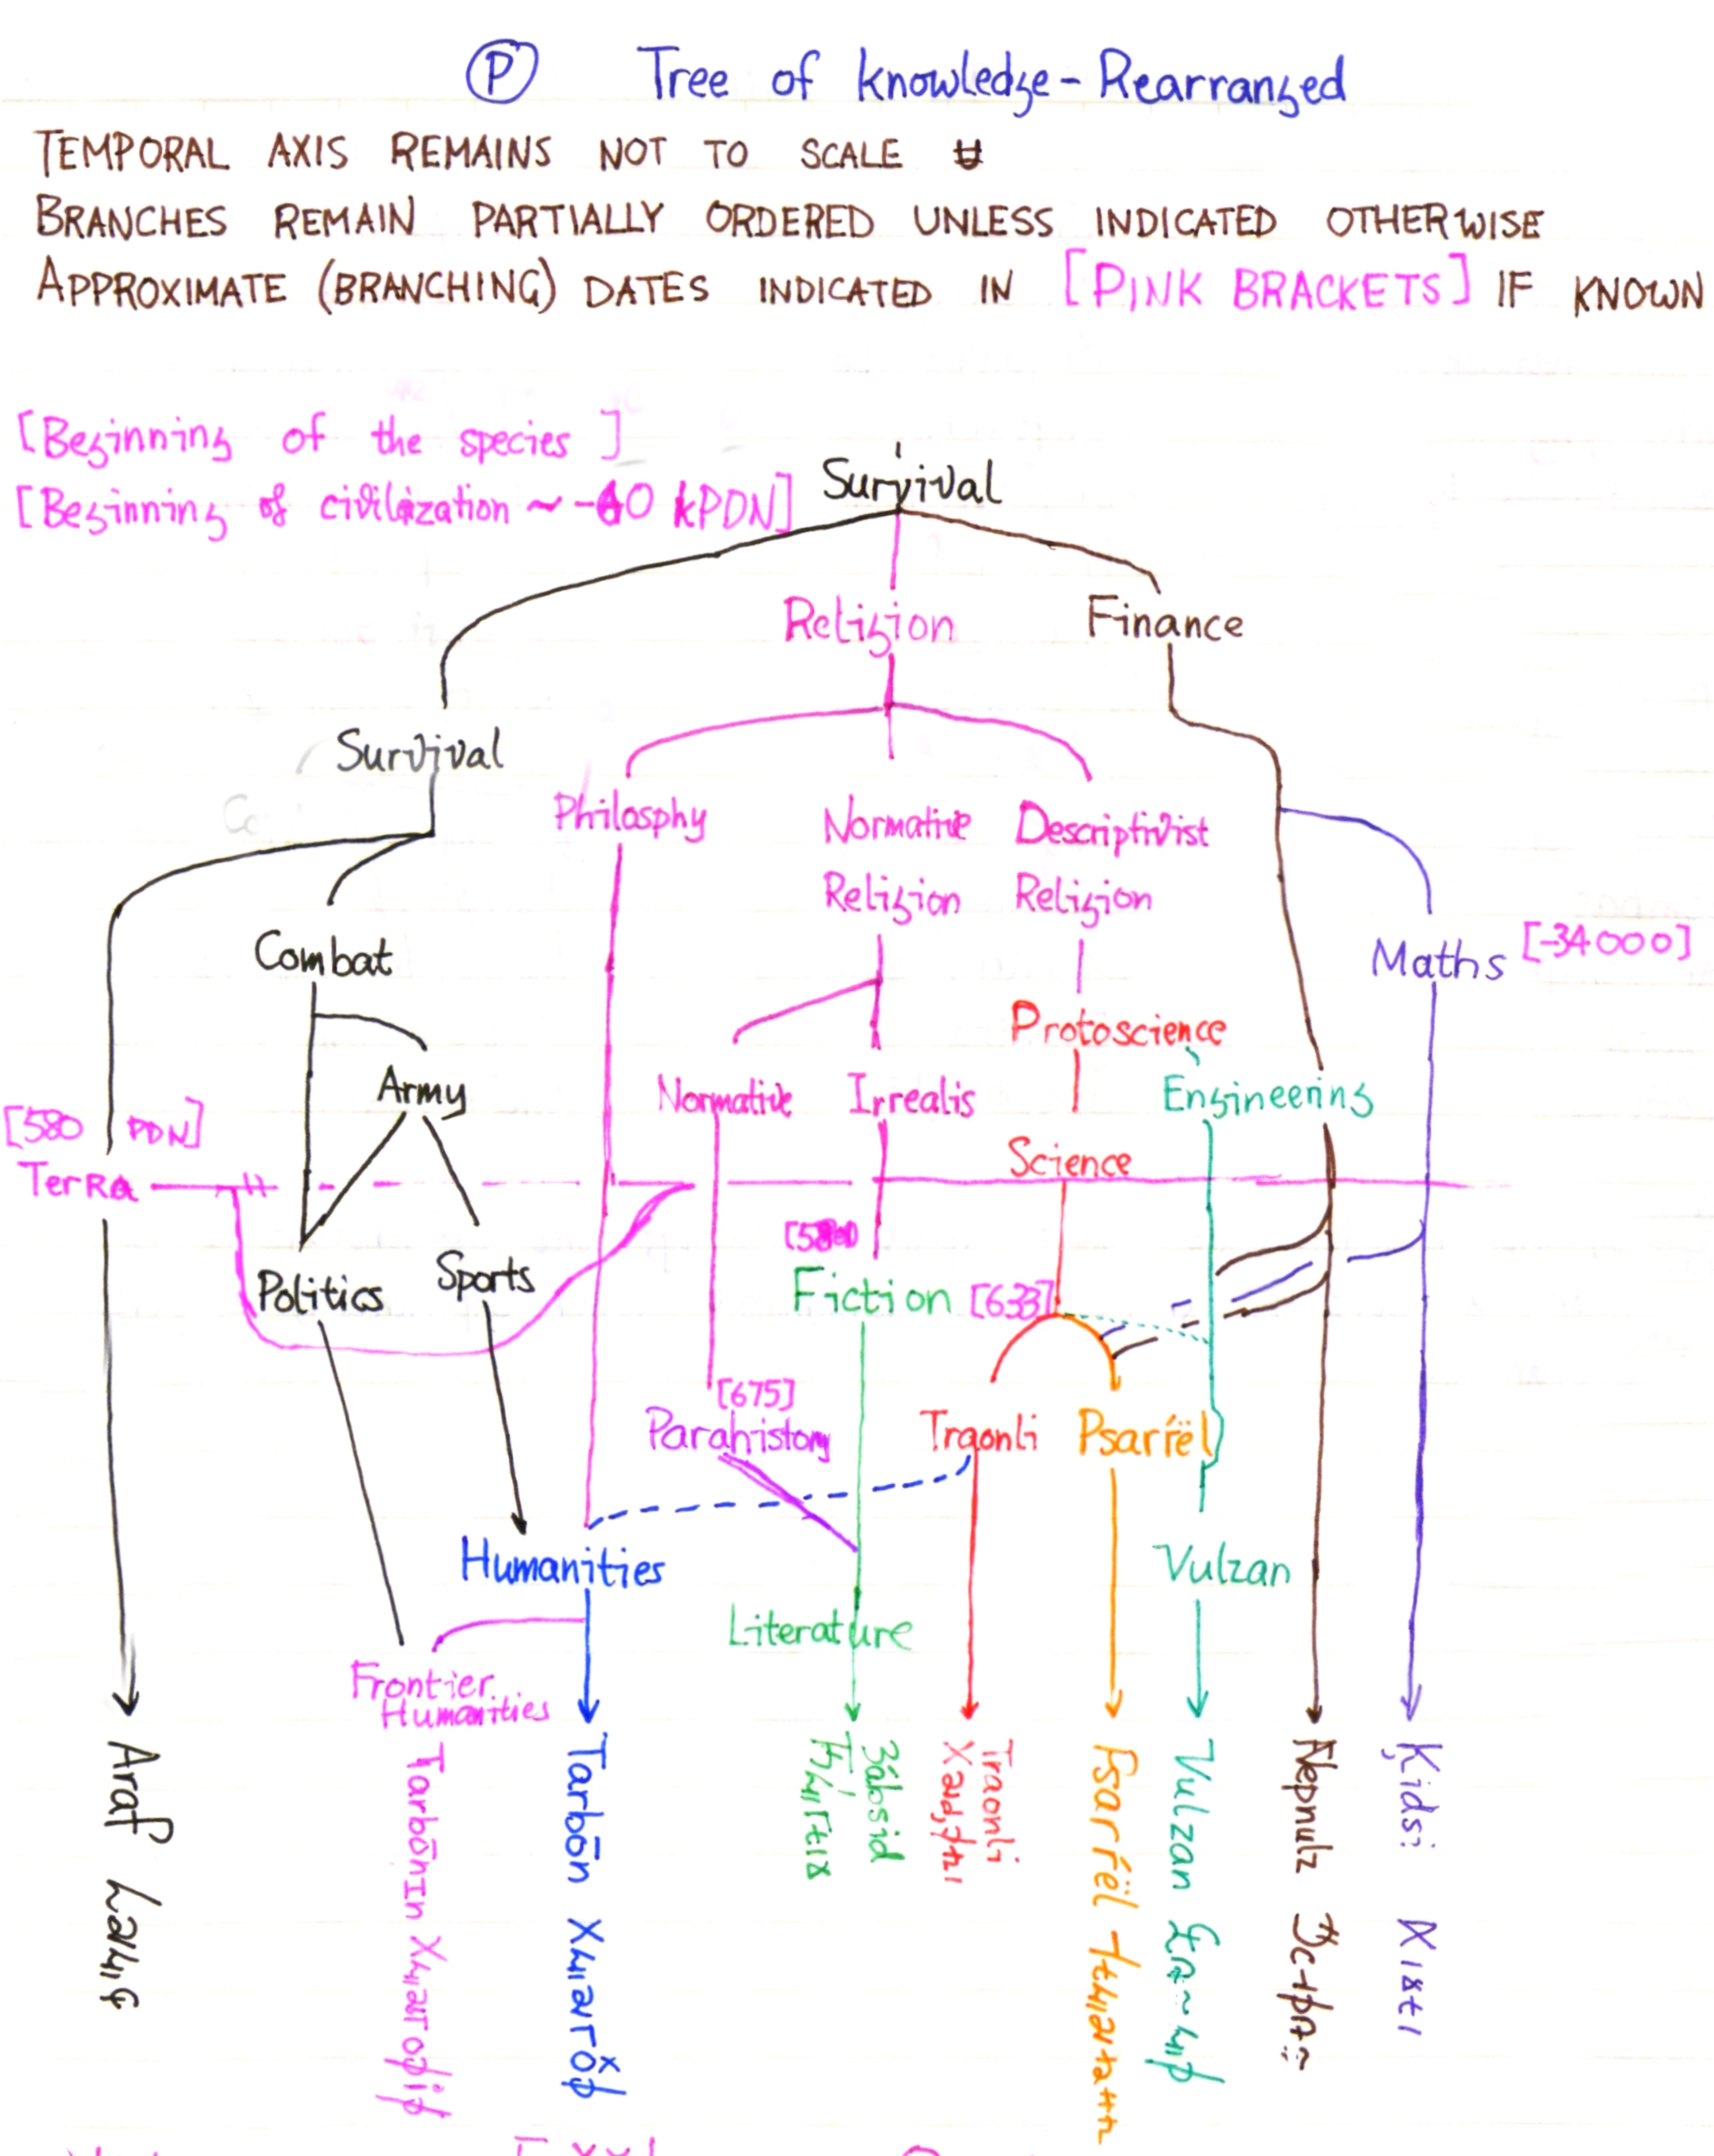 P Tree of knowledge - Rearranged
TEMPORAL AXIS REMAINS NOT TO SCALE
BRANCHES REMAIN PARTIALLY ORDERED UNLESS INDICATED OTHERWISE
APPROXIMATE (BRANCHING) DATES INDICATED IN [PINK BRACKETS] IF KNOWN
[Beginning of the species]
[Beginning of civilization ~ -40 kPDN]
Survival
Religion
Finance
Survival
Philosphy
Normative
Religion
Descriptivist
Religion
Combat
Maths [-34000]
Protoscience
Army
Normative
Irrealis
Engineering
[580 PDN]
Terra
Science
[580]
Politics
Sports
Fiction
[633]
[675]
Parahistory
Traonli
Psarŕël
Humanities
Vulzan
Literature
Frontier
Humanities
Araf
Tarbōnin
Tarbōn
Zábsid
Traonli
Psarŕël
Vulzan
Nepnulz
Ķidsi